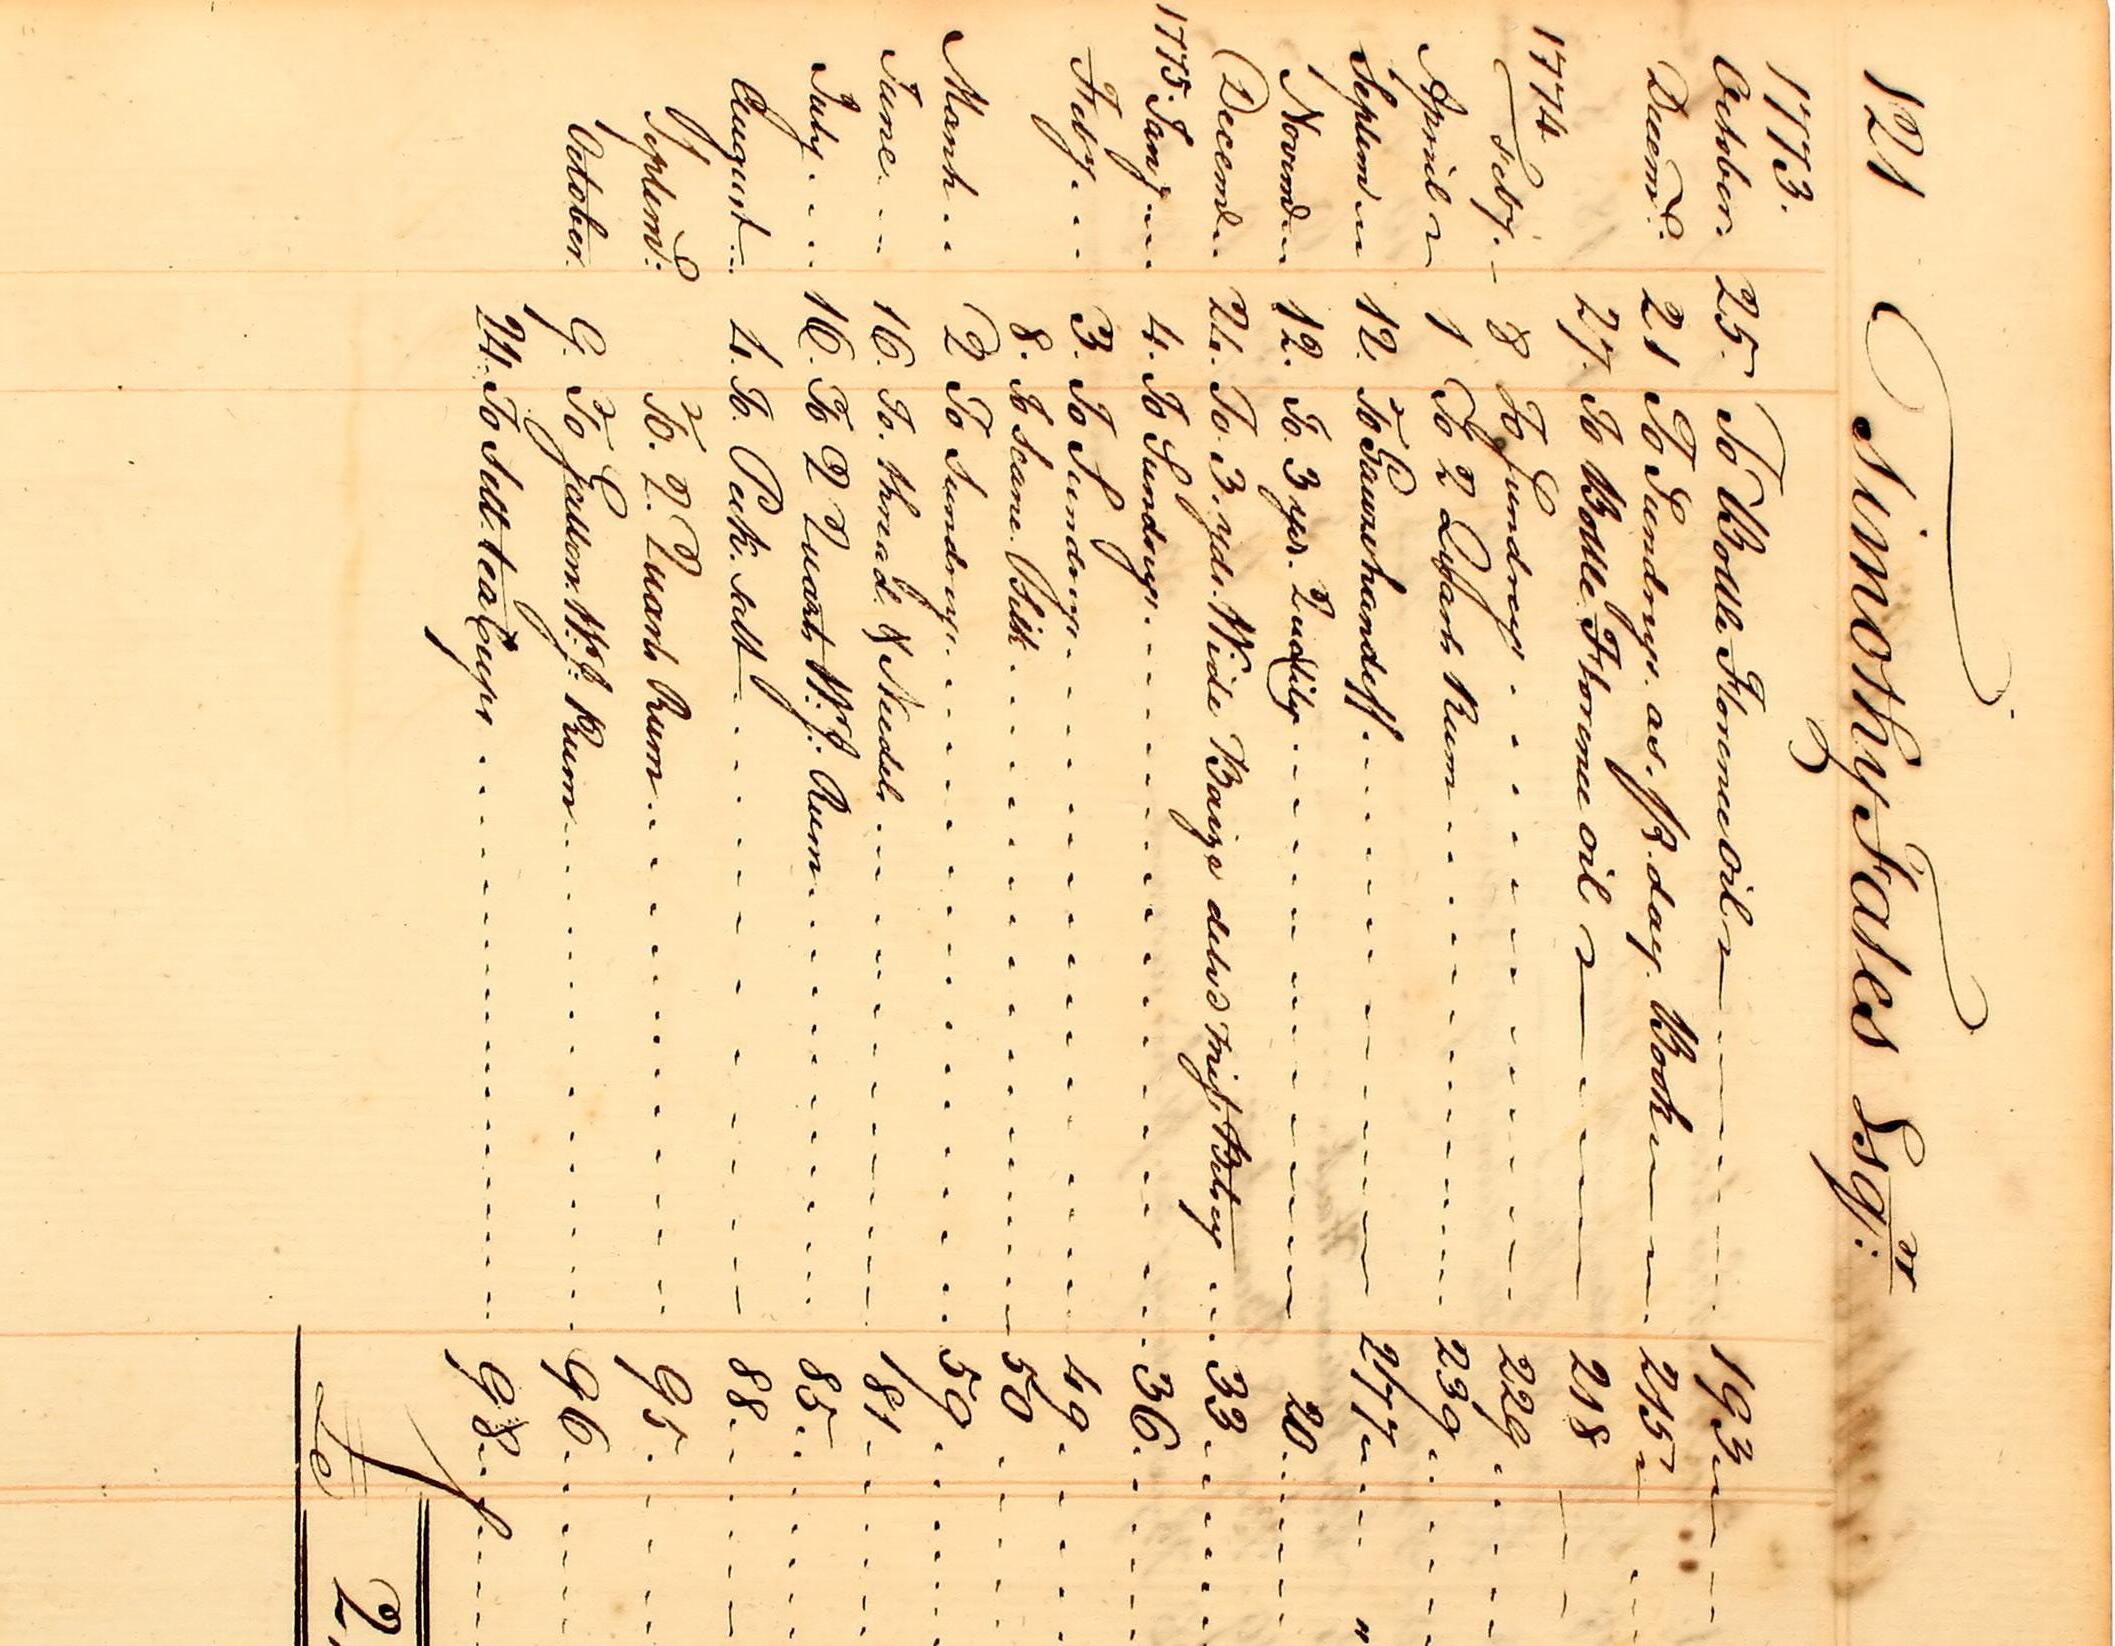 121 Timothy Fales Esqr:
1773.
October 25. To Bottle Florence Oil 193
Decemr: 21 To Sundrys. as. pr. day. Book 215
27. To Bottle Florence oil 218
1774
Feby. 8 To Sundreys 229
April 1 To 2 Quarts Rum 239
Septemr 12. To Gauzehandkff. 277
Novemr 12. To. 3 yds. 20
Decemr 21. To. 3. yds. Wide Baize deld Miss Betsy 33
1775. Jany 4. To Sundrys. 36.
Feby. 3. To Sundrys. 49.
8. To Scane Silk 50
March 2 To Sundrys. 59.
June 16. To. thread. & Needls 81.
July 16. To 2 Quarts W. I: Rum 85.
August 4. To. Peck. salt 88.
Septemr: To. 2. Quarts Rum 95.
October. 9. To Gallon. W. I: Rum 96.
24. To Sett. tea Cups 98.
£ 2